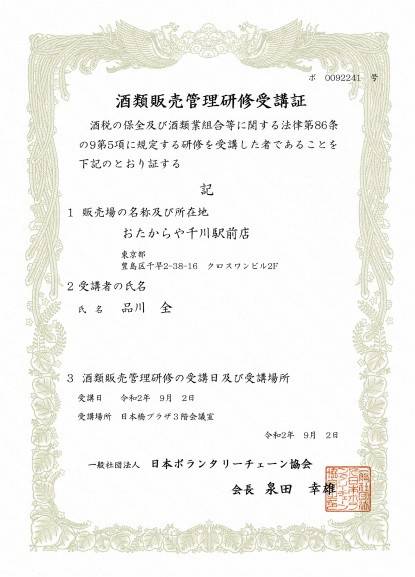 ボ 0092241 号
酒類販売管理研修受講証
酒税の保全及び酒類業組合等に関する法律第86条
の9第5項に規定する研修を受講した者であることを
下記のとおり証する
記
1 販売場の名称及び所在地
おたからや千川駅前店
東京都
豊島区千早2-38-16 クロスワンビル2F
2 受講者の氏名
氏 名 品川 全
3 酒類販売管理研修の受講日及び受講場所
受講日 令和2年 9月 2日
受講場所 日本橋プラザ3階会議室
令和2年 9月 2日
一般社団法人 日本ボランタリーチェーン協会
会長 泉田 幸雄